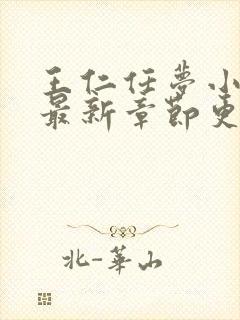 王仁任夢小
最新章節更
北-華山